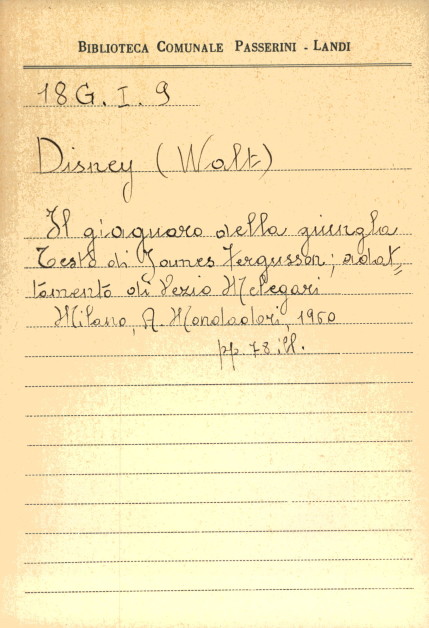 BIBLIOTECA COMUNALE PASSERINI - LANDI
18 G. I. 9
Disney (Walt)
Il giaguaro della giungla
Testo di James Fergusson; adat=
tamento di Vezio Melegari
Milano, A. Mondadori, 1960
pp. 78 ill.